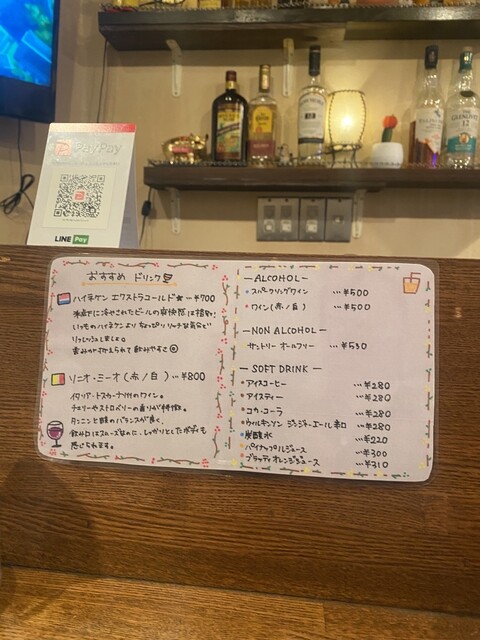 PayPay
LINE Pay
おすすめ ドリンク
ハイネケン エクストラコールド★ … ¥700
氷点下に冷やされたビールの爽快感は格別!
いつものハイネケンより ちょっぴりリッチな気分で
リフレッシュしましょ。
苦みがおさえられて飲みやすさ◎
ソニオ・ミーオ(赤/白) … ¥800
イタリア・トスカーナ州のワイン。
チェリーやストロベリーの香りが特徴。
タンニンと酸のバランスが良く、
飲み口はスムーズなのに、しっかりとしたボディも
感じられます。
— ALCOHOL —
スパークリングワイン … ¥500
ワイン(赤/白) … ¥500
— NON ALCOHOL —
サントリー オールフリー … ¥530
— SOFT DRINK —
アイスコーヒー … ¥280
アイスティー … ¥280
コカ・コーラ … ¥280
ウィルキンソン ジンジャーエール 辛口 … ¥280
炭酸水 … ¥220
パイナップルジュース … ¥300
ブラッディオレンジジュース … ¥310